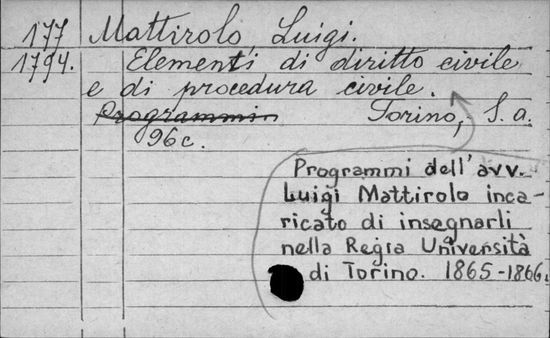 177 Mattirolo Luigi.
1794. Elementi di diritto civile
e di procedura civile.
Programmin Torino, S. a.
96c.
Programmi dell'avv.
Luigi Mattirolo inca-
ricato di insegnarli
nella Regia Università
di Torino. 1865-1866.